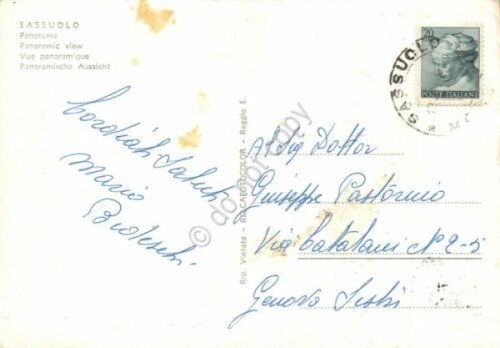 SASSUOLO
Panorama
Panoramic view
Vue panoramique
Panoramische Aussicht
Cordiali Saluti
Mario
Rip. Vietata - REG CAFOTOCOLOR - Reggio E.
20
POSTE ITALIANE
SASSUOLO
Al Sig Dottor
Giuseppe Pastorino
Via Catalani N 2-5
Genova Sestri